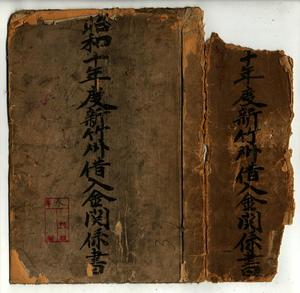 昭和十年度新竹州借入金関係書
十年度新竹州借入金関係書